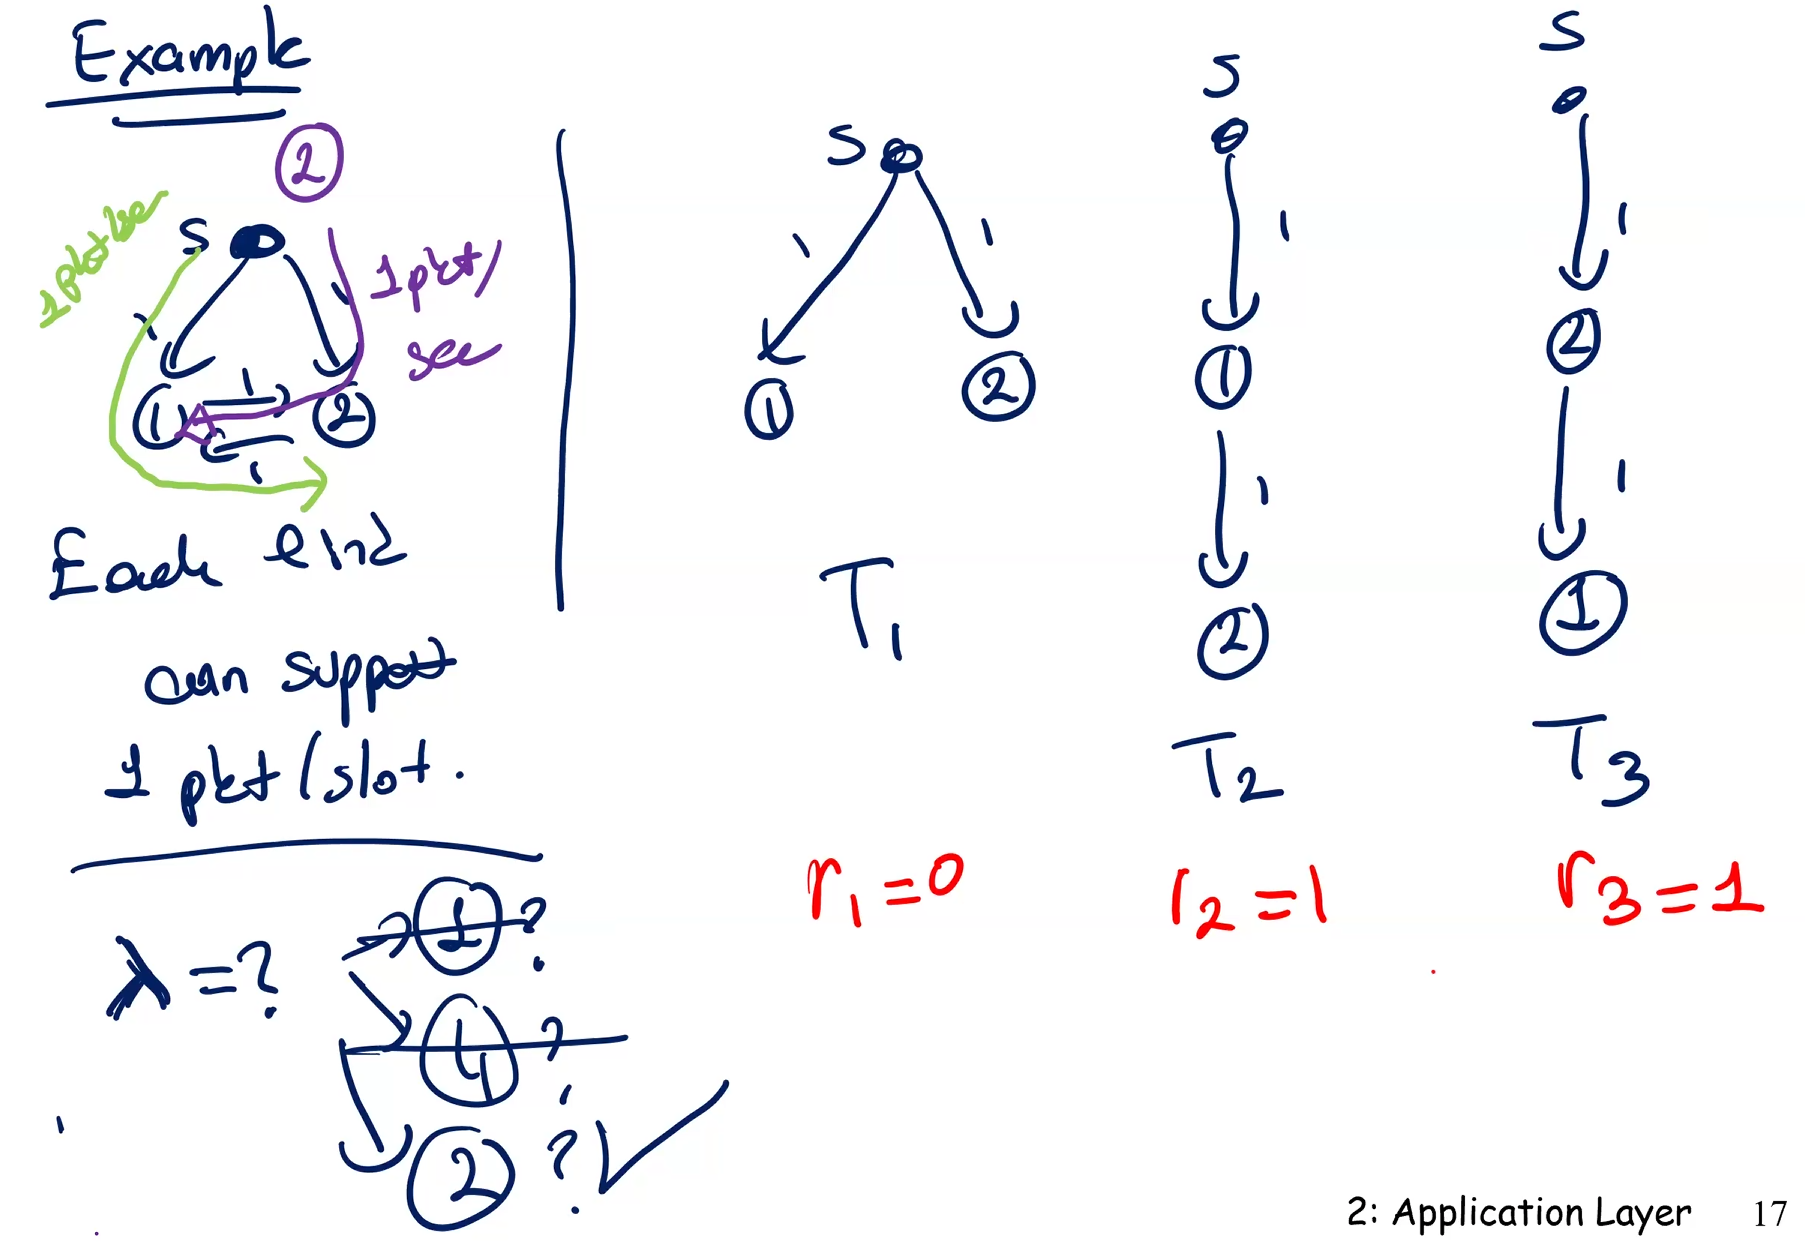 Example
2
1 pkt/sec
S
1 pkt/
sec
1
1
1
2
1
Each link
can support
1 pkt/slot.
λ=?
1 ?
4 ?
2 ?
S
1
1
1
2
T1
r1=0
S
1
1
1
2
T2
r2=1
S
1
2
1
1
T3
r3=1
2: Application Layer 17